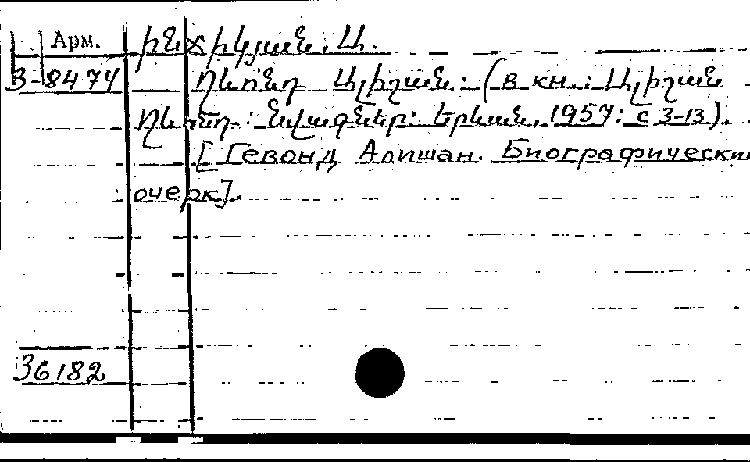 Арм. Ինճիկյան. Ա.
3-8474 Ղևոնդ Ալիշան. (в кн.: Ալիշան
Ղևոնդ. Նվագներ: Երևան, 1957: с 3-13).
[Гевонд Алишан. Биографический
очерк].
36182